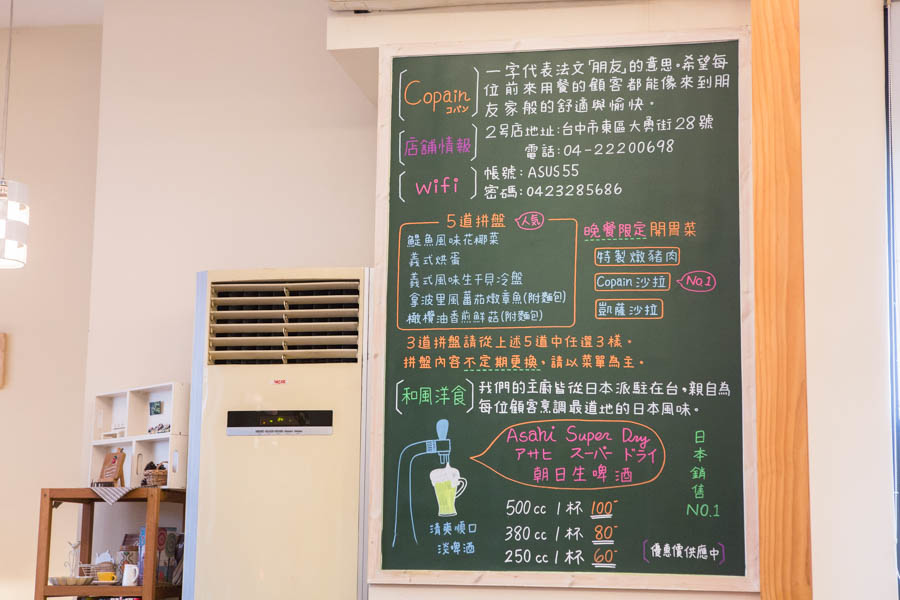 Copain
コパン
一字代表法文「朋友」的意思。希望每
位前來用餐的顧客都能像來到朋
友家般的舒適與愉快。
店舖情報
2号店地址:台中市東區大勇街28號
電話:04-22200698
Wifi
帳號: ASUS55
密碼: 0423285686
5道拼盤 人気
鯷魚風味花椰菜
義式烘蛋
義式風味生干貝冷盤
拿波里風蕃茄燉章魚(附麵包)
橄欖油香煎鮮菇(附麵包)
晚餐限定開胃菜
特製燉豬肉
Copain沙拉 No.1
凱薩沙拉
3道拼盤請從上述5道中任選3樣。
拼盤內容不定期更換。請以菜單為主。
和風洋食
我們的主廚皆從日本派駐在台。親自為
每位顧客烹調最道地的日本風味。
Asahi Super Dry
アサヒ スーパー ドライ
朝日生啤酒
日本銷售NO.1
清爽順口
淡啤酒
500cc 1杯 100-
380cc 1杯 80-
250cc 1杯 60-
優惠價供應中